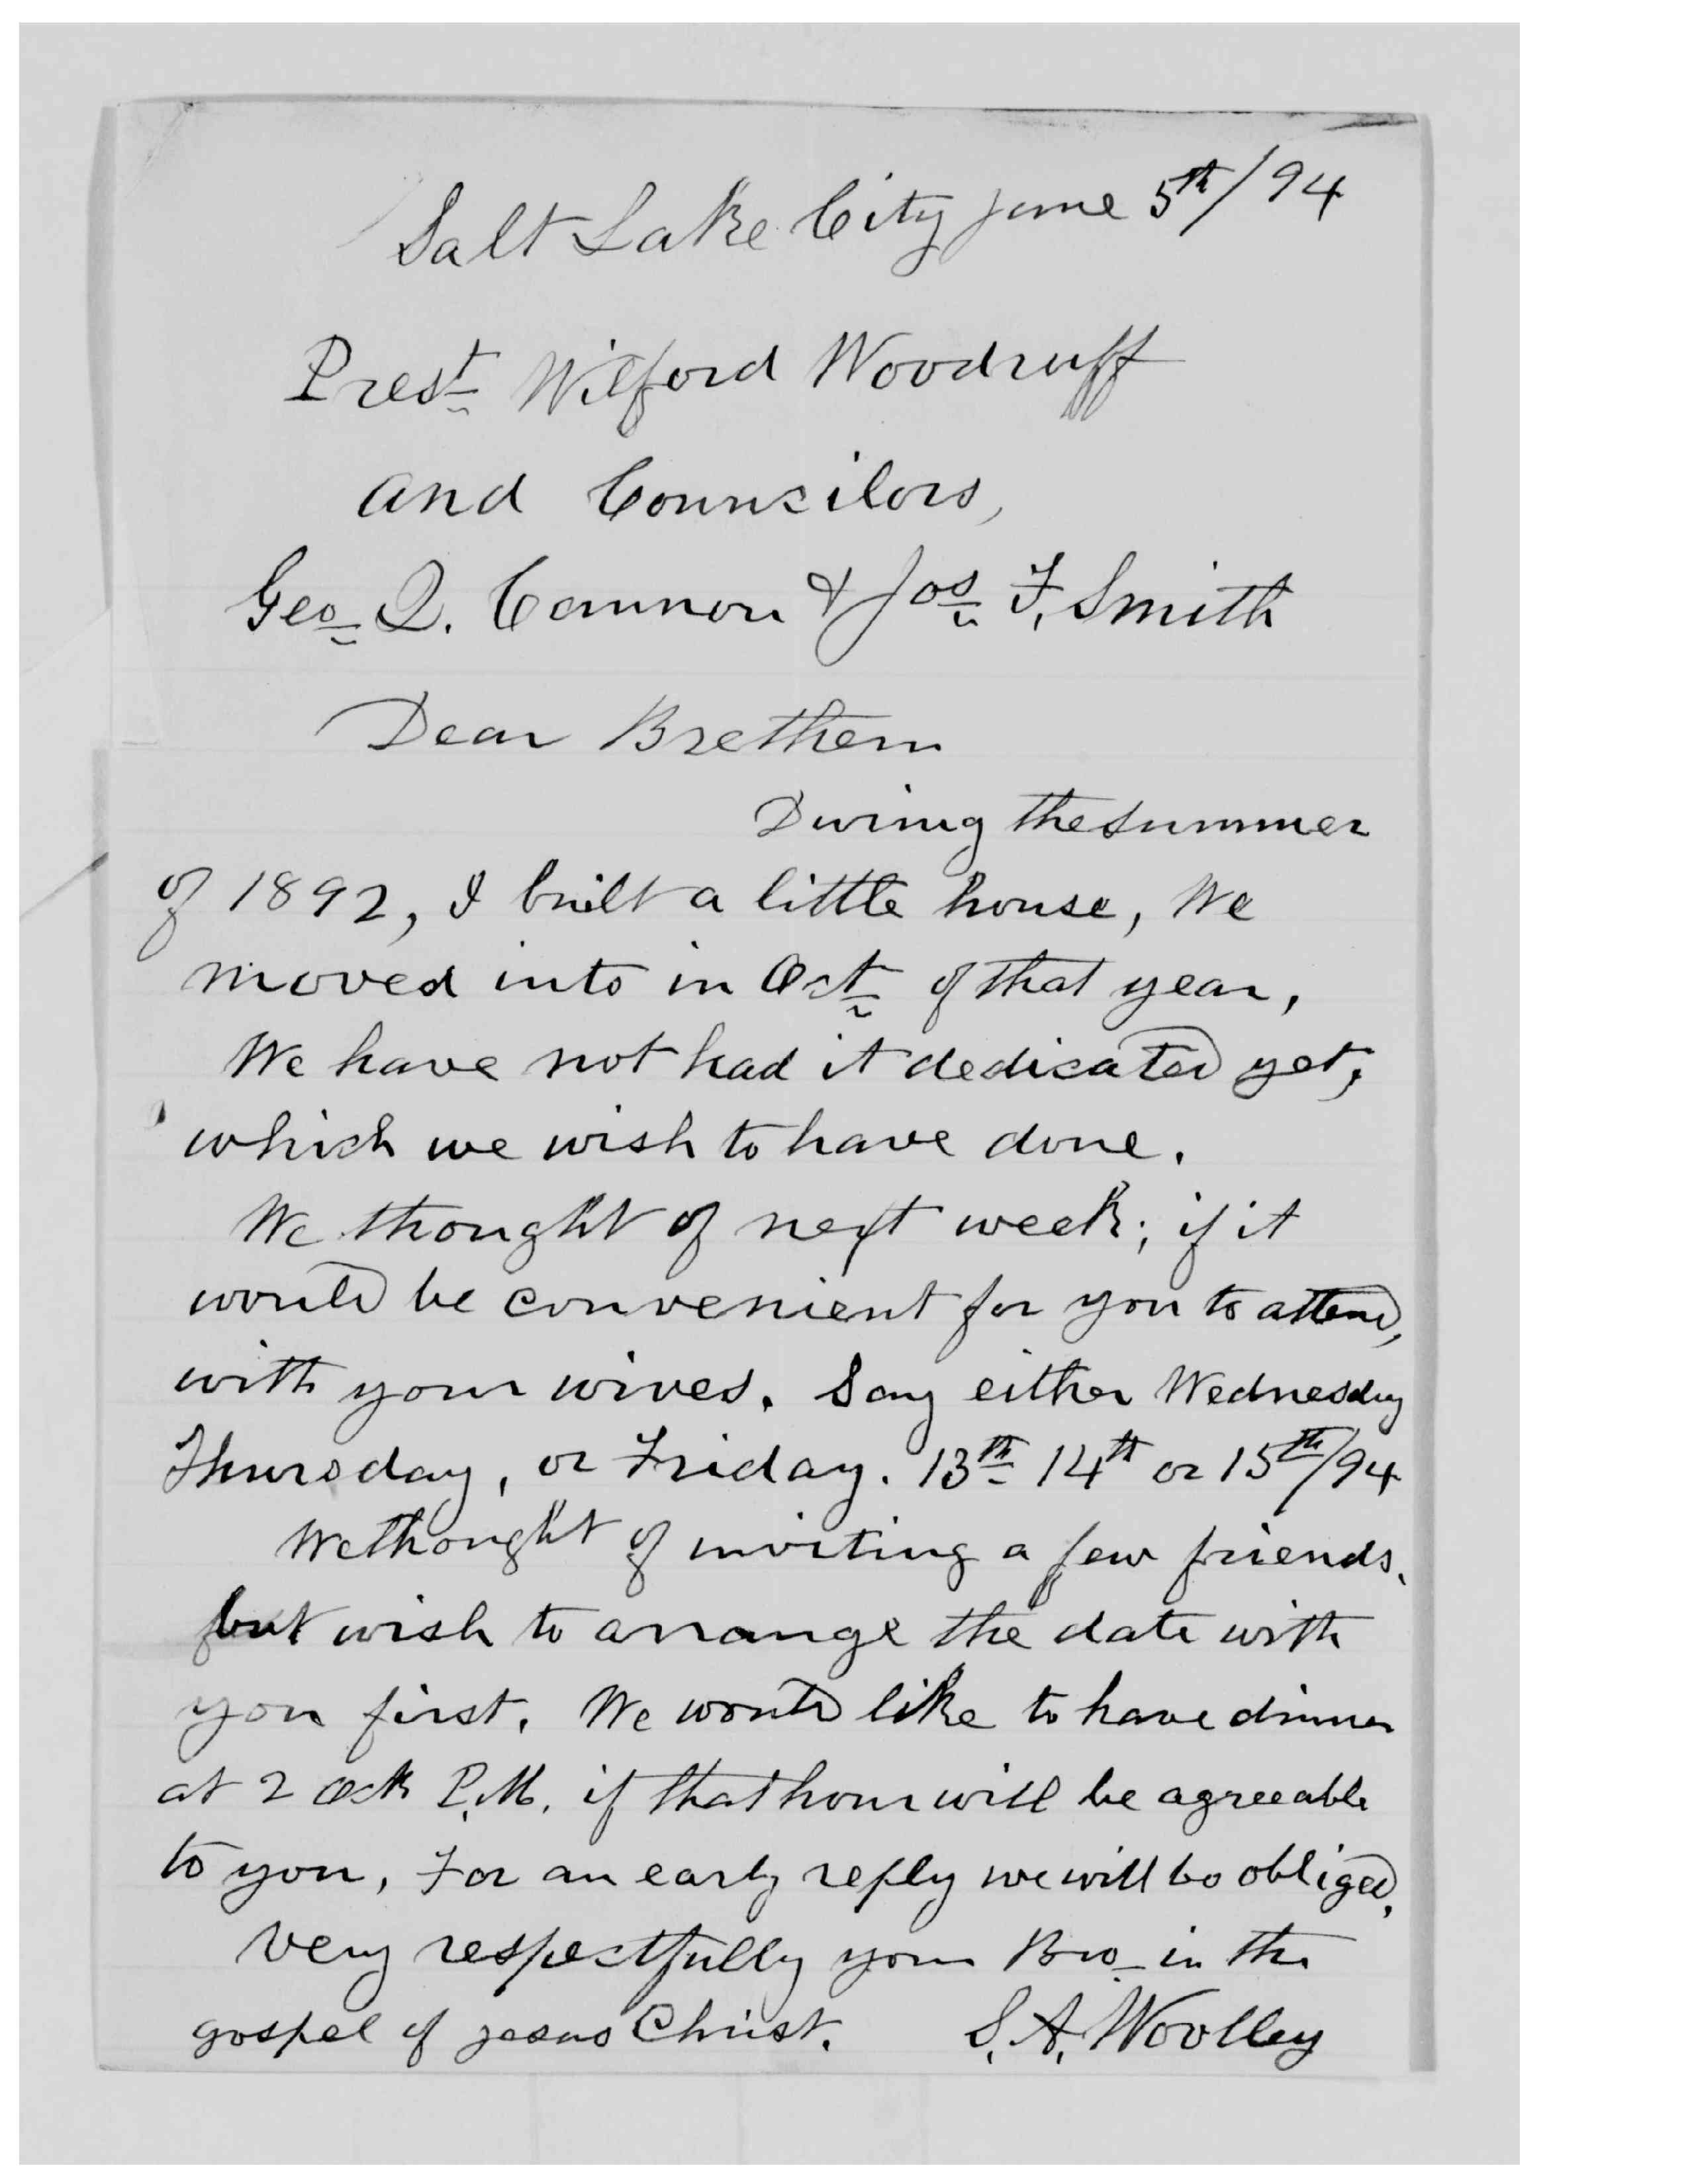 Salt Lake City June 5th/94
Prest Wilford Woodruff
and Councilors,
Geo Q. Cannon & Jos F. Smith
Dear Brethern
During the summer
of 1892, I built a little house, We
moved into in Oct of that year,
We have not had it dedicated yet,
which we wish to have done.
We thought of next week; if it
would be convenient for you to attend,
with your wives. Say either Wednesday
Thursday, or Friday. 13th 14th or 15th/94
We thought of inviting a few friends,
but wish to arrange the date with
you first. We would like to have dinner
at 2 Ock P.M. if that hour will be agreeable
to you, For an early reply we will be obliged.
Very respectfully your Bro in the
gospel of Jesus Christ. S. A. Woolley